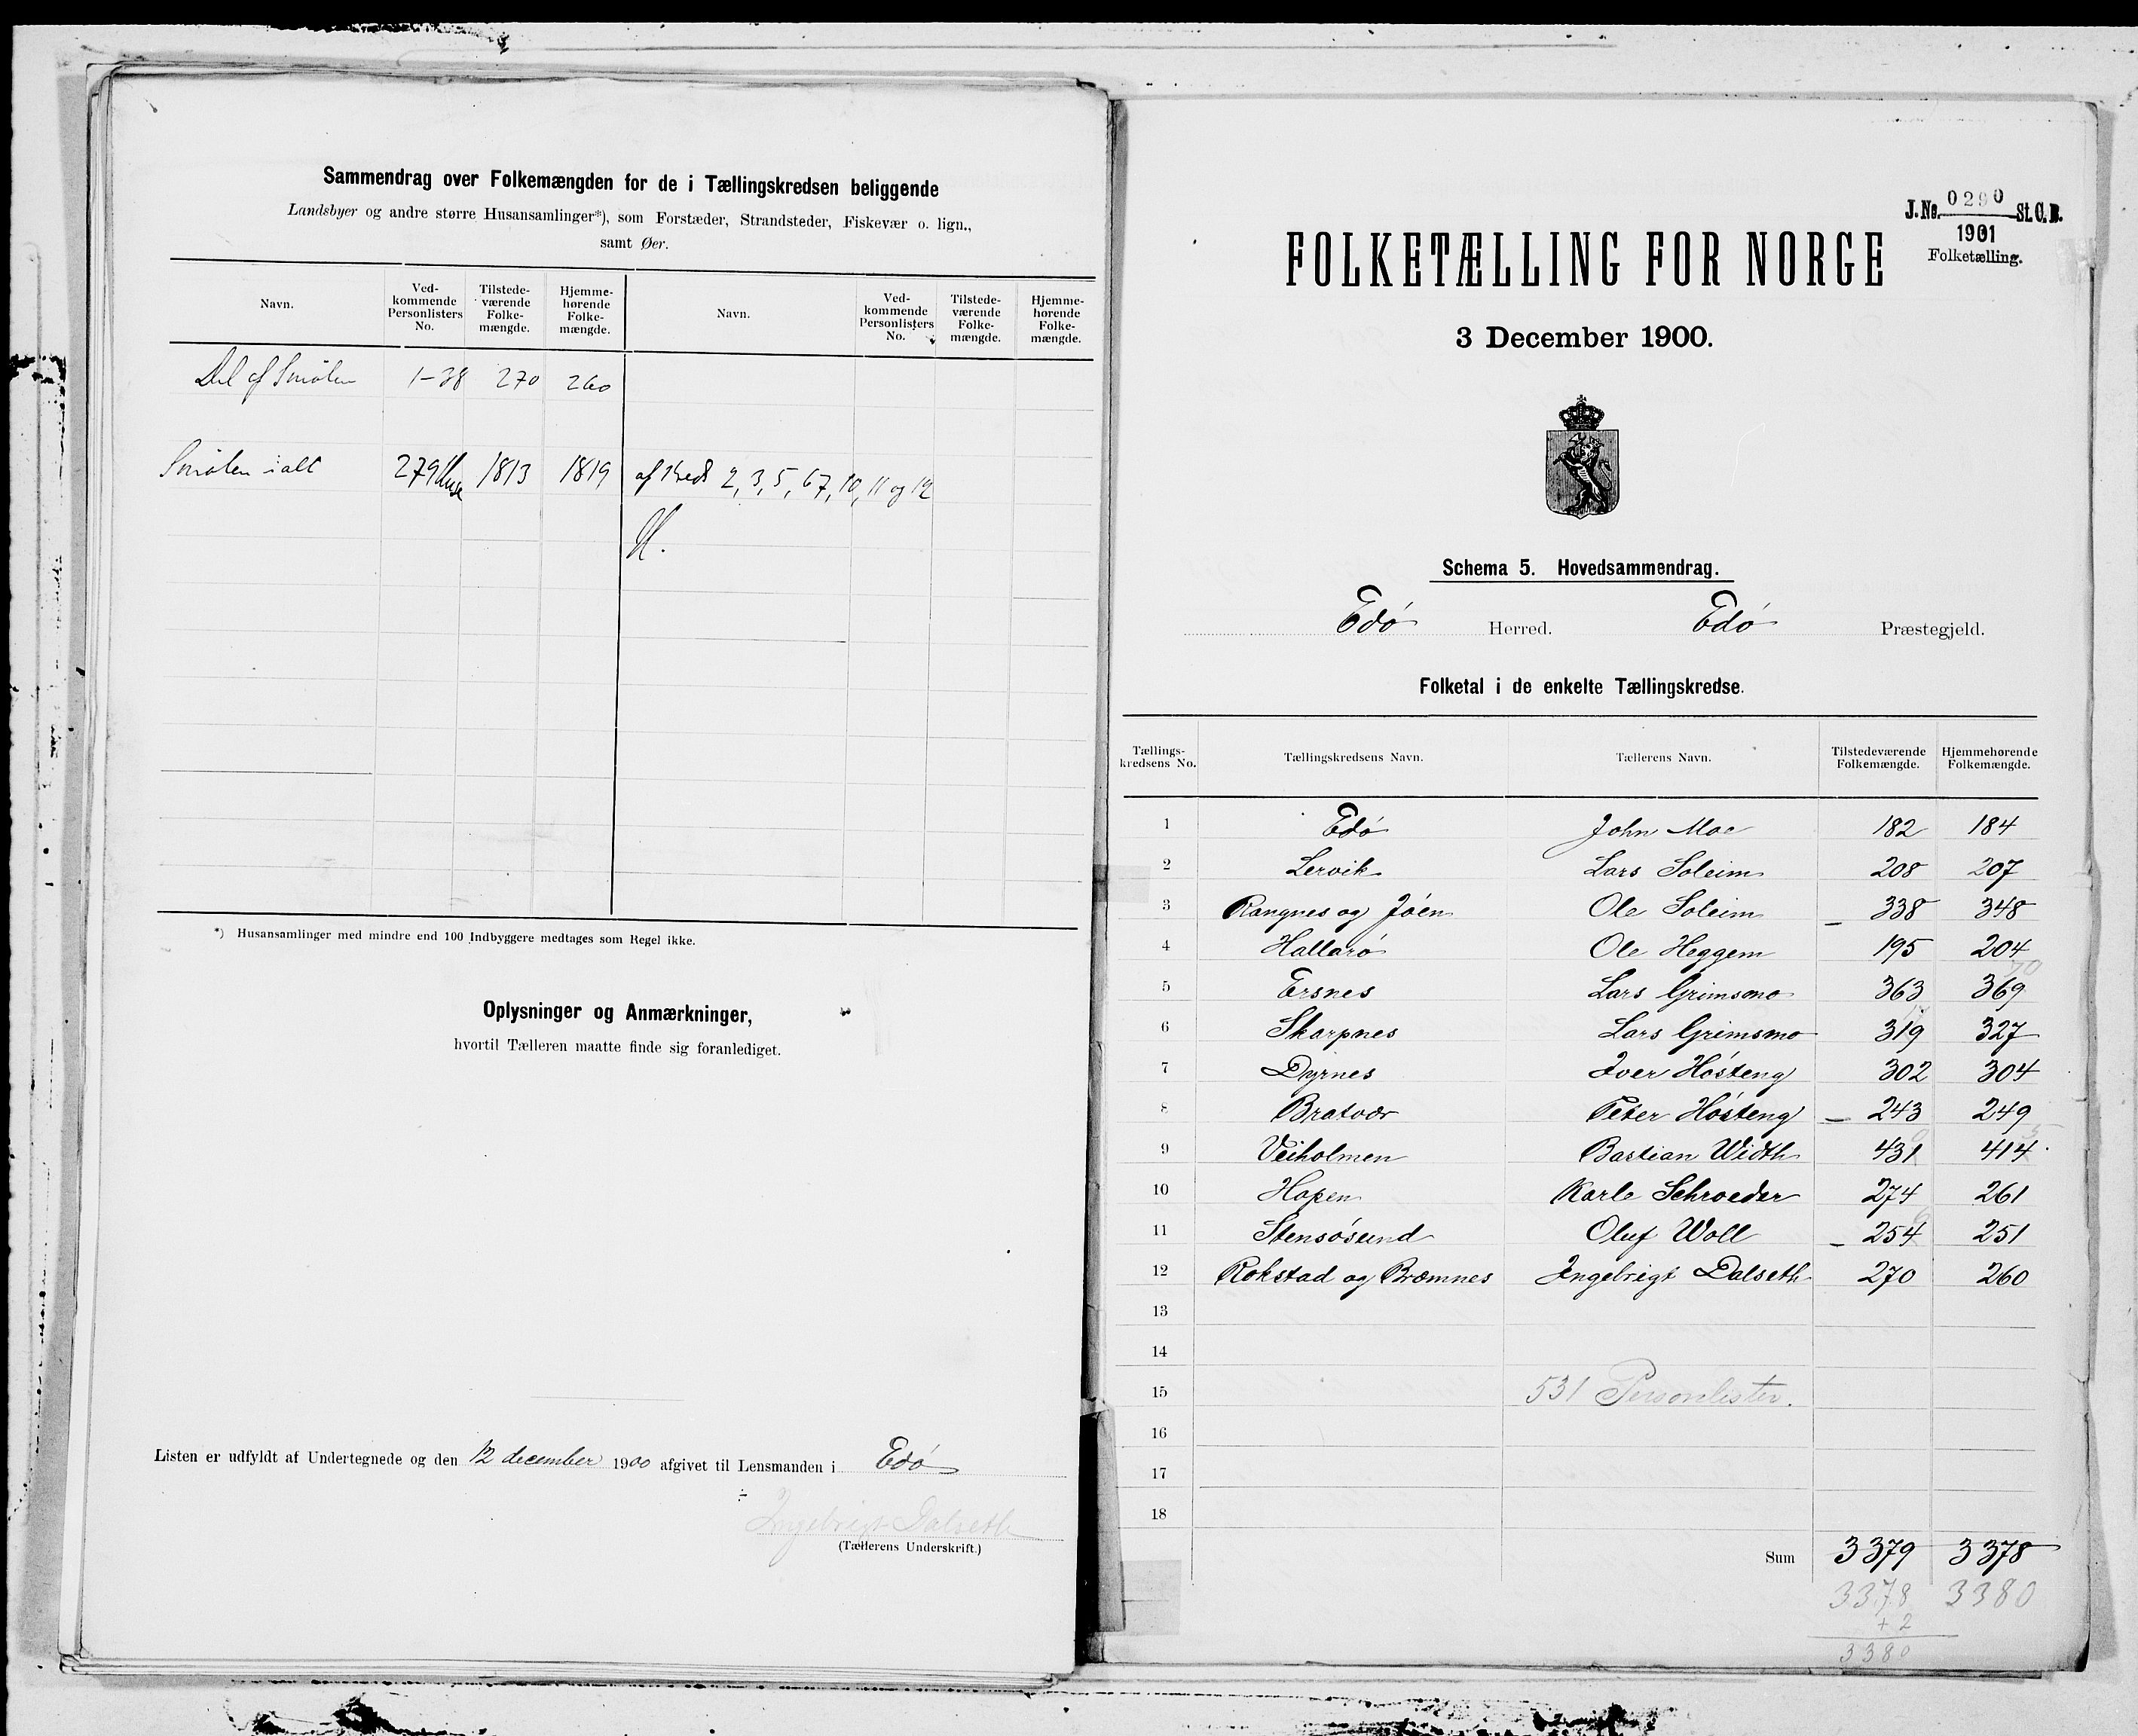 Sammendrag over Folkemængden for de i Tællingskredsen beliggende
Landsbyer og andre større Husansamlinger*), som Forstæder, Strandsteder, Fiskevær o. lign.,
samt Øer.
Navn. Ved-kommende Personlisters No. Tilstede-værende Folke-mængde. Hjemme-hørende Folke-mængde. Navn. Ved-kommende Personlisters No. Tilstede-værende Folke-mængde. Hjemme-hørende Folke-mængde.
Del af Smølen 1-38 270 260
Smølen ialt 279 Huse 1813 1819 af Kreds 2, 3, 5, 6 7, 10, 11 og 12
*) Husansamlinger med mindre end 100 Indbyggere medtages som Regel ikke.
Oplysninger og Anmærkninger,
hvortil Tælleren maatte finde sig foranlediget.
Listen er udfyldt af Undertegnede og den 12 december 1900 afgivet til Lensmanden i Edø
Ingebrigt Dalseth
(Tællerens Underskrift.)
J. No. 0290 St. C. B.
1901
Folketælling.
FOLKETÆLLING FOR NORGE
3 December 1900.
Schema 5. Hovedsammendrag.
Edø Herred. Edø Præstegjeld.
Folketal i de enkelte Tællingskredse.
Tællings-kredsens No. Tællingskredsens Navn. Tællerens Navn. Tilstedeværende Folkemængde. Hjemmehørende Folkemængde.
1 Edø John Moe 182 184
2 Lervik Lars Soleim 208 207
3 Rangnes og Jøen Ole Soleim 338 348
4 Hallarø Ole Heggem 195 204
5 Ersnes Lars Grimsmo 363 369
6 Skarpnes Lars Grimsmo 319 327
7 Dyrnes Iver Høsteng 302 304
8 Bratvær Peter Høsteng 243 249
9 Veiholmen Bastian Width 431 414
10 Hopen Karle Schroeder 274 261
11 Stensøsund Oluf Woll 254 251
12 Rokstad og Bræmnes Ingebrigt Dalseth 270 260
13
14
15 531 Personlister.
16
17
18
Sum 3379 3378
3378 3380
+ 2
3380